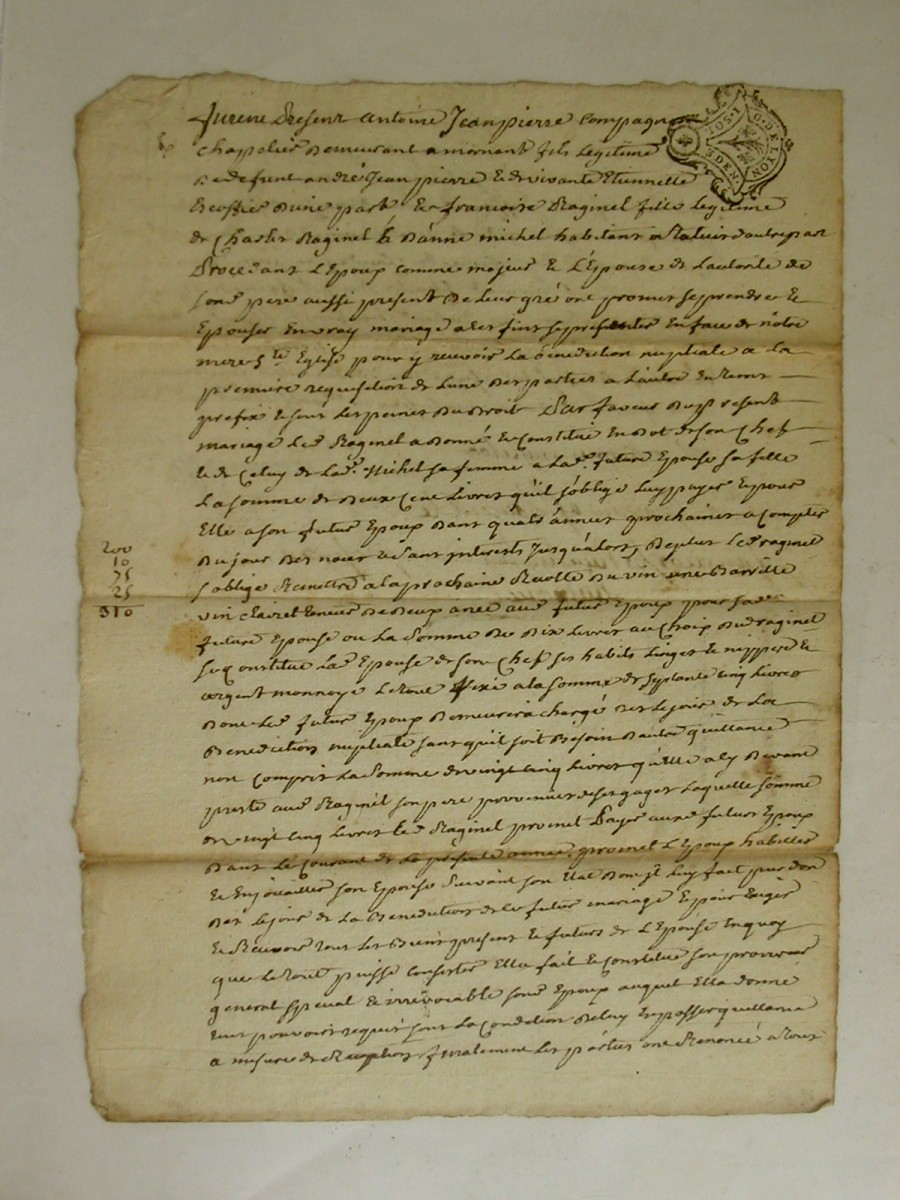 furent present antoine Jeanpierre Compagnon
chapelier demeurant a mornant fils legitime
de defunt andré Jeanpierre & de vivante Etiennette
d'une part & francoise Raginel fille legitime
de Charles Raginel & d'anne michel habitant a d'autre part
procedant L'Epoux comme majeur & L'Epouse de L'autorité de
sond pere aussi present de leur gré ont promis se prendre &
Epouser En vray mariage a ces fins se presenter En face de nôtre
mere Ste Eglise pour y recevoir La benediction nuptiale a La
premiere requisition de L'une des parties a L'autre
prefix & sous Les peines du droit En faveur du present
mariage Led Raginel a donné & Constitué En dot de son Chef
& de Celuy de Lad. Michel sa femme a Lad. future Epouse sa fille
La somme de deux Cent Livres qu'il s'oblige Luy payer & pour
Elle a son futur Epoux dans quatre années prochaines a Compter
du jour des noces & sans interests jusqu'alors, de plus Led raginel
s'oblige Remettre a La prochaine Recolte du vin une Barrille
vin Clairet teneur de deux anée aud futur Epoux pour sad
future Epouse ou La Somme de Dix Livres au Choix dud raginel
se Constitue Lad Epouse de son Chef ses habits Linges & nippes &
argent monnoye Le tout fixé a La somme de septante Cinq Livres
dont Led futur Epoux demeurera chargé des Le jour de La
Benediction nuptiale sans qu'il soit Besoin d'autre quittance
non Compris La Somme de vingt Cinq Livres qu'Elle a Cy devant
presté aud Raginel son pere provenües de ses gages Laquelle somme
de vingt Cinq Livres Led Raginel promet payer aud futur Epoux
dans Le Courant de La presente année, promet L'Epoux habiller
& Enjoüailler son Epouse suivant son Etat dont il Luy fait pur don
des Le jour de La Benediction de Ce futur mariage & pour Exiger
& Recevoir tous Les Biens present & futurs de L'Epouse En quoy
que Le tout puisse Consister Elle fait & Constitue son procureur
general special & irrevocable sond Epoux auquel Elle donne
tout pouvoir requis sous La Condition de Luy En passer quittance
a mesure de Reception finalement Les parties ont Renoncé a tous
200
10
75
25
310
10S. 1
3 DEN.
G. DE LYON